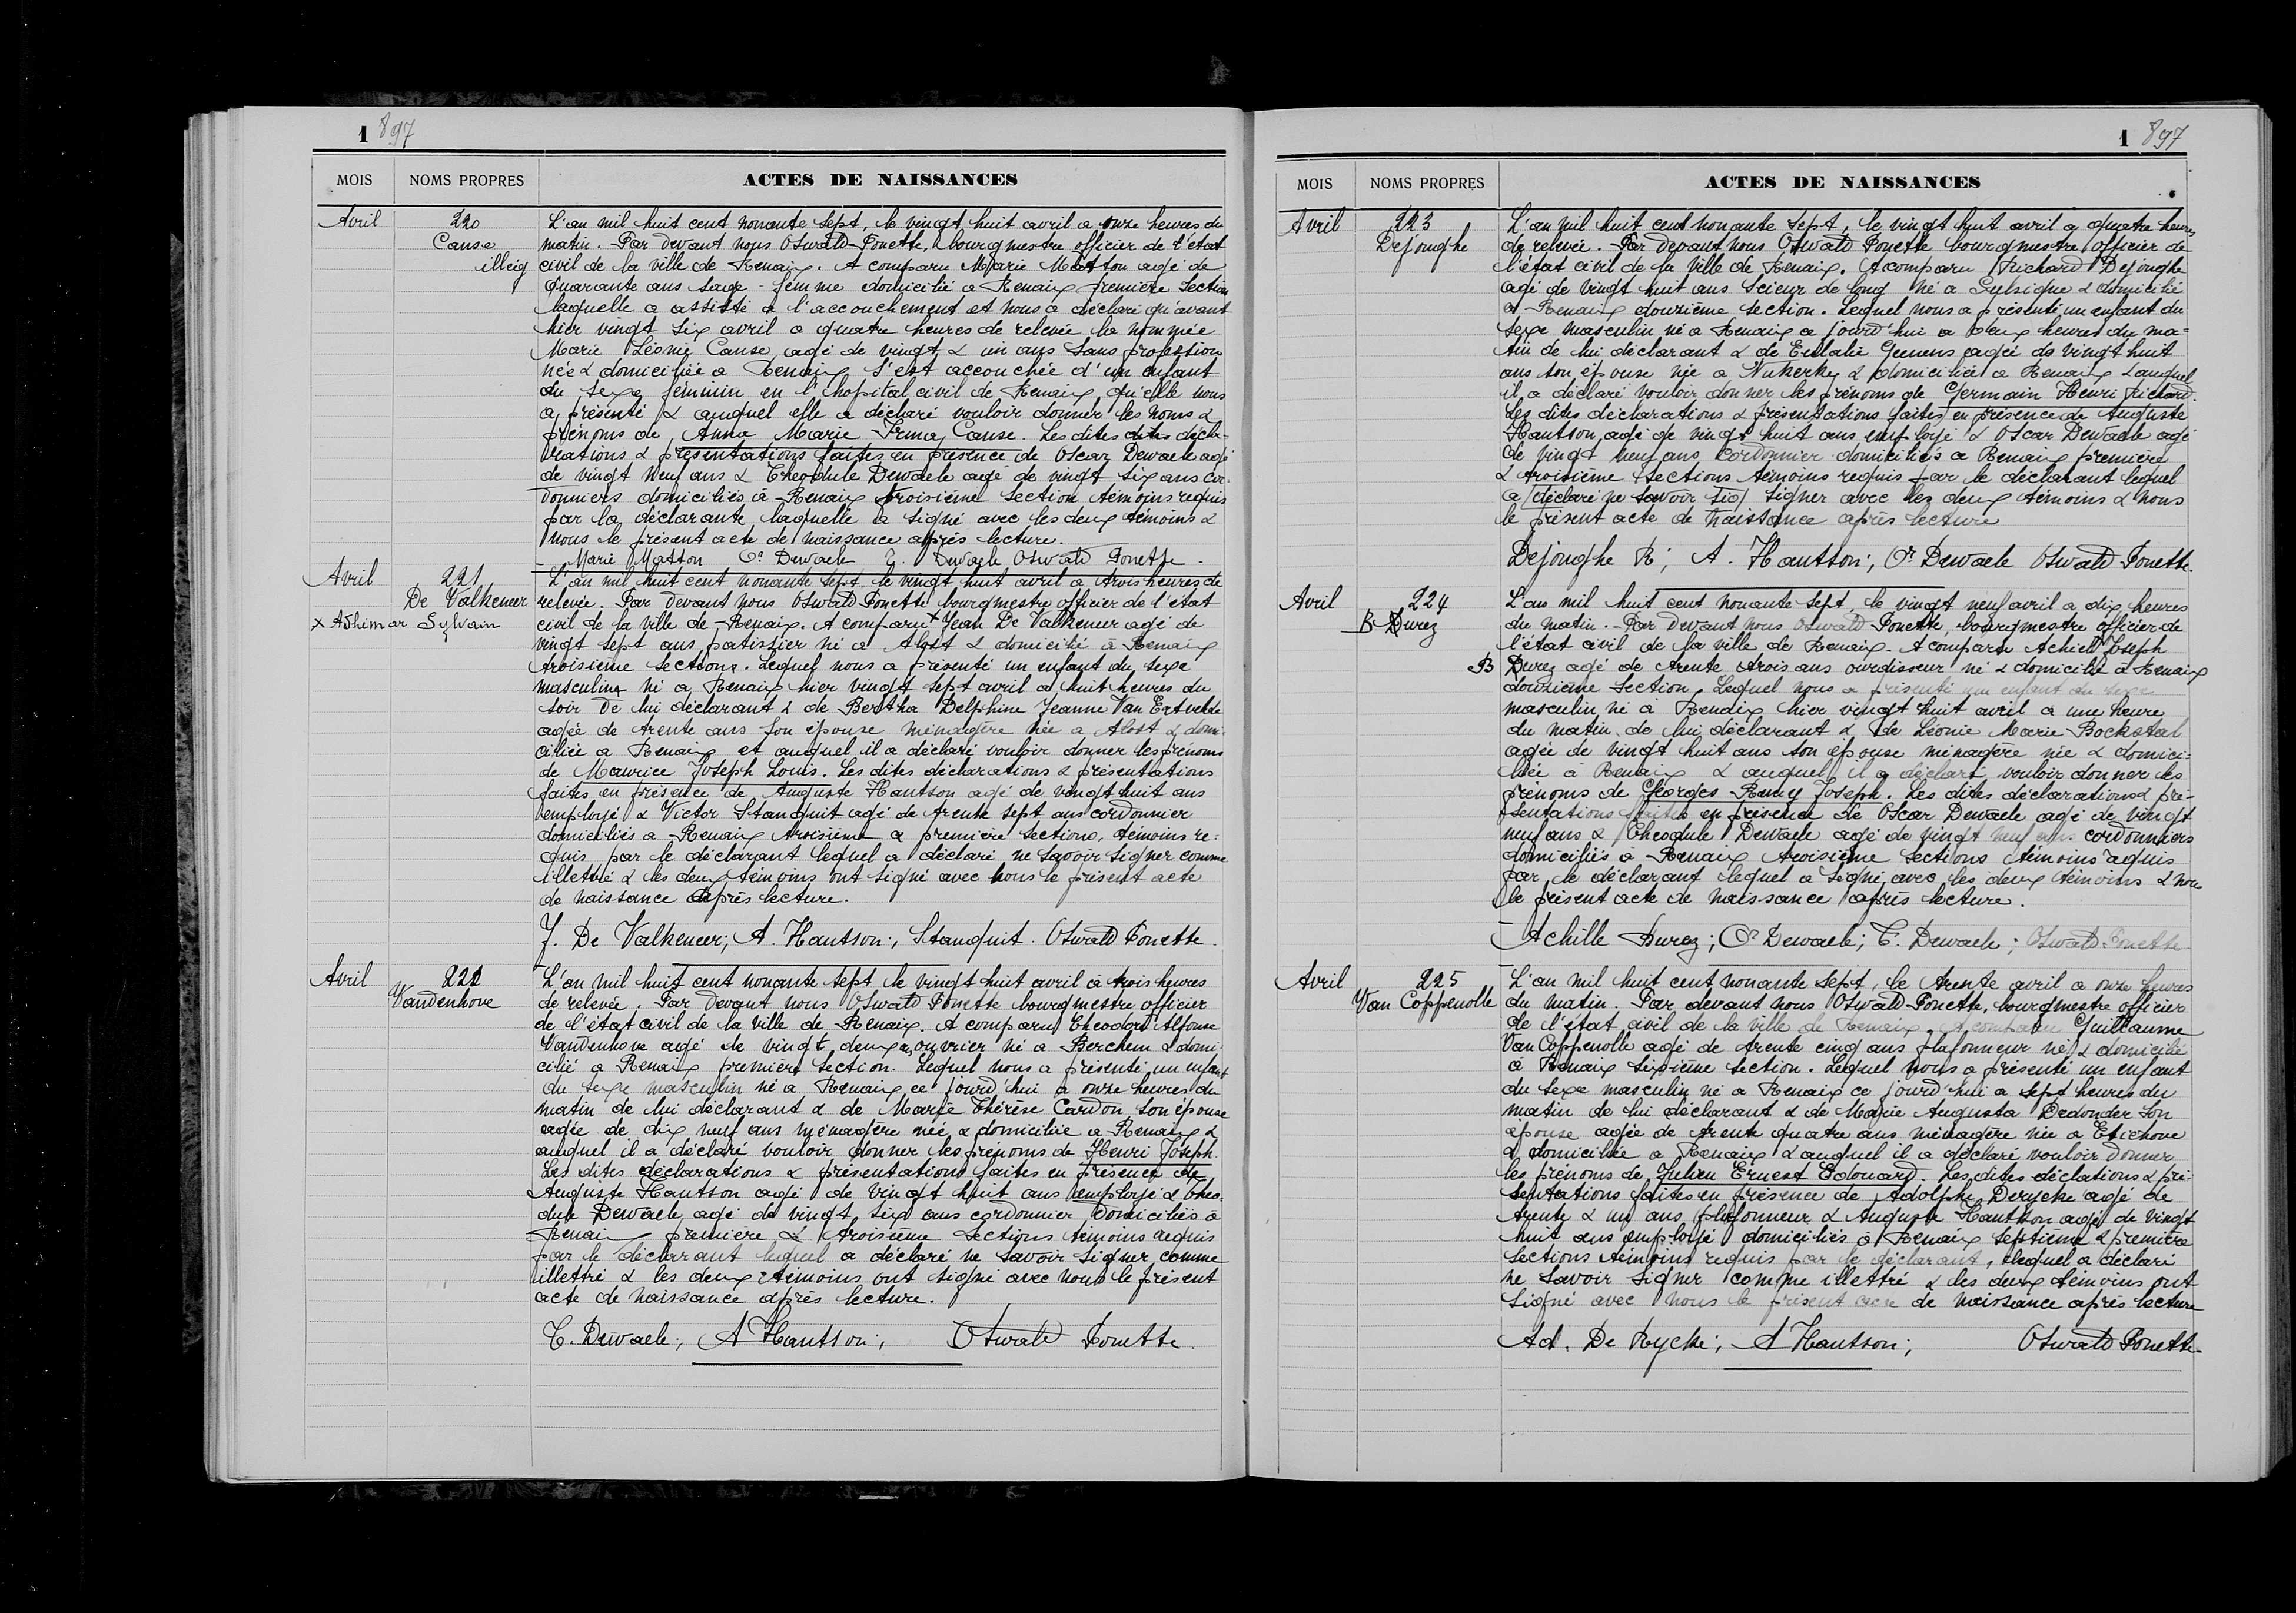 1 897
MOIS NOMS PROPRES ACTES DE NAISSANCES
Avril
220
Canse
illeig
L'an mil huit cent nonante sept, le vingt huit avril a onze heures du
matin. Par devant nous Oswald Ponette, bourgmestre officier de l'état
civil de la ville de Renaix. A comparu Marie Matton agé de
Quarante ans sage-femme domicilié a Renaix première Section
laquelle a assisté à l'accouchement et nous a déclaré qu'avant
hier vingt six avril a quatre heures de relevée la nommée
Marie Léonie Canse agé de vingt & un ans sans profession
née & domiciliée a Renaix s'est accouchée d'un enfant
du sexe féminin en l'hopital civil de Renaix qu'elle nous
a présenté & auquel elle a déclaré vouloir donner les noms &
prénoms de Anna Marie Irma Canse. Les dites dites décla-
rations & présentations faites en présence de Oscar Dewaele agé
de vingt neuf ans & Théodule Dewaele agé de vingt six ans cor-
donniers domiciliés à Renaix troisième section témoins requis
par la déclarante laquelle a signé avec les deux témoins &
nous le présent acte de naissance après lecture.
Marie Matton Or Dewaele T. Dewaele Oswald Ponette
Avril
221
De Valkeneer
x Adhimar Sylvain
L'an mil huit cent nonante sept le vingt huit avril a trois heures de
relevée. Par devant nous Oswald Ponette bourgmestre officier de l'état
civil de la ville de Renaix. A comparu x Jean De Valkeneer agé de
vingt sept ans patissier né a Alost & domicilié à Renaix
troisième sections. Lequel nous a présenté un enfant du sexe
masculin né a Renaix hier vingt sept avril a huit heures du
soir de lui déclarant & de Bertha Delphine Jeanne Van Extvelde
agée de trente ans son épouse ménagère née a Alost & domi-
ciliée a Renaix et auquel il a déclaré vouloir donner les prénoms
de Maurice Joseph Louis. Les dites déclarations & présentations
faites en présence de Auguste Hantson agé de vingt huit ans
employé & Victor Stanquit agé de trente sept ans cordonnier
domiciliés a Renaix troisième & première sections, témoins re-
quis par le déclarant lequel a déclaré ne savoir signer comme
illettré & les deux témoins ont signé avec nous le présent acte
de naissance après lecture.
J. De Valkeneer; A. Hantson; Stanquit. Oswald Ponette.
Avril
222
Vandenhove
L'an mil huit cent nonante sept le vingt huit avril à trois heures
de relevée. Par devant nous Oswald Ponette bourgmestre officier
de l'état civil de la ville de Renaix. A comparu Theodore Alfonse
Vandenhove agé de vingt deux ouvrier né a Berchem & domi-
cilié a Renaix première section. Lequel nous a présenté un enfant
du sexe masculin né a Renaix ce jourd'hui a onze heures du
matin de lui déclarant & de Marie Thérèse Cardon son épouse
agée de dix neuf ans ménagère née & domiciliée a Renaix &
auquel il a déclaré vouloir donner les prénoms de Henri Joseph.
Les dites déclarations & présentations faites en présence de
Auguste Hantson agé de vingt huit ans employé & Théo-
dule Dewaele agé de vingt six ans cordonnier domiciliés à
Renaix première & troisième sections témoins requis
par le déclarant lequel a déclaré ne savoir signer comme
illettré & les deux témoins ont signé avec nous le présent
acte de naissance après lecture.
T. Dewaele; A Hantson; Oswald Ponette.
1 897
MOIS NOMS PROPRES ACTES DE NAISSANCES
Avril
223
Dejonghe
L'an mil huit cent nonante sept, le vingt huit avril a quatre heures
de relevée. Par devant nous Oswald Ponette bourgmestre officier de
l'état civil de la ville de Renaix. A comparu Richard Dejonghe
agé de vingt huit ans scieur de long né a Sulsique & domicilié
a Renaix douzième section. Lequel nous a présenté un enfant du
sexe masculin né a Renaix ce jourd'hui a deux heures du ma-
tin de lui déclarant & de Eulalie Geenens agée de vingt huit
ans son épouse née a Nukerke & domiciliée a Renaix & auquel
il a déclaré vouloir donner les prénoms de Germain Henri Richard.
Les dites déclarations & présentations faites en présence de Auguste
Hantson agé de vingt huit ans employé & Oscar Dewaele agé
de vingt neuf ans cordonnier domiciliés a Renaix première
& troisième sections témoins requis par le déclarant lequel
a déclaré ne savoir sig signer avec les deux témoins & nous
le présent acte de naissance après lecture
Dejonghe R; A. Hantson; Or Dewaele Oswald Ponette.
Avril
224
B Durez
L'an mil huit cent nonante sept, le vingt neuf avril a dix heures
du matin. Par devant nous Oswald Ponette, bourgmestre officier de
l'état civil de la ville de Renaix. A comparu Achiel Joseph
B Durez agé de trente trois ans ourdisseur né & domicilié à Renaix
douzième section. Lequel nous a présenté un enfant du sexe
masculin né à Renaix hier vingt huit avril a une heure
du matin de lui déclarant & de Léonie Marie Bockstal
agée de vingt huit ans son épouse ménagère née & domici-
liée à Renaix & auquel il a déclaré vouloir donner les
prénoms de Georges Remy Joseph. Les dites déclarations & pré-
sentations faites en présence de Oscar Dewaele agé de vingt
neuf ans & Theodule Dewaele agé de vingt neuf ans cordonniers
domiciliés à Renaix troisième sections témoins requis
par le déclarant lequel a signé avec les deux témoins & nous
le présent acte de naissance après lecture.
Achille Durez; Or Dewaele; T. Dewaele; Oswald Ponette
Avril
225
Van Coppenolle
L'an mil huit cent nonante sept, le trente avril a onze heures
du matin. Par devant nous Oswald Ponette, bourgmestre officier
de l'état civil de la ville de Renaix. A comparu Guillaume
Van Coppenolle agé de trente cinq ans plafonneur né & domicilié
à Renaix sixième section. Lequel nous a présenté un enfant
du sexe masculin né a Renaix ce jourd'hui a sept heures du
matin de lui déclarant & de Marie Augusta Dedonder son
épouse agée de trente quatre ans ménagère née a Etichove
& domiciliée a Renaix & auquel il a déclaré vouloir donner
les prénoms de Julien Ernest Edouard. Les dites déclations & pré-
sentations faites en présence de Adolphe Derycke agé de
trente & un ans plafonneur & Auguste Hantson agé de vingt
huit ans employé domiciliés à Renaix septième & première
sections témoins requis par le déclarant, lequel a déclaré
ne savoir signer comme illettré & les deux témoins ont
signé avec nous le présent acte de naissance après lecture
Ad. De Rycke; A Hantson; Oswald Ponette.